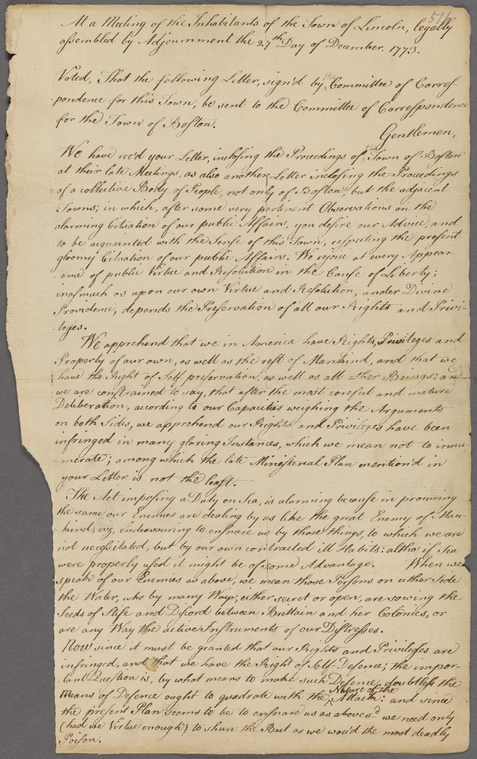 At a Meeting of the Inhabitants of the Town of Lincoln, legally
assembled by Adjournment the 27th Day of December 1773.
Voted, That the following Letter, sign'd by the Committee of Corres
pondence for this Town, be sent to the Committee of Correspondence
for the Town of Boston.
Gentlemen,
We have rec'd your Letter, inclosing the Proceedings of the Town of Boston
at their late Meetings, as also another Letter inclosing the Proceedings
of a collective Body of People, not only of Boston, but the adjacent
Towns; in which, after some very pertinent Observations on the
alarming Situation of our public Affairs, you desire our Advice, and
to be acquainted with the Sense of this Town, respecting the present
gloomy Situation of our public Affairs. We rejoice at every Appear
ance of public Virtue and Resolution in the Cause of Liberty;
inasmuch as upon our own Virtue and Resolution, under Divine
Providence, depends the Preservation of all our Rights and Privi-
leges.
We apprehend that we in America have Rights, Privileges and
Property of our own, as well as the rest of Mankind, and that we
have the Right of Self preservation, as well as all other Beings: and
we are constrained to say, that after the most careful and mature
Deliberation, according to our Capacities weighing the Arguments
on both Sides, we apprehend our Rights and Privileges have been
infringed in many glaring Instances, which we mean not to innu
merate; among which the late Ministerial Plan mention'd in
your Letter is not the least.
The Act imposing a Duty on Tea, is alarming because in procuring
the same our Enemies are dealing by us like the great Enemy of Man-
kind; viz, endeavouring to ensnare us by those things, to which we are
not necessitated, but by our own contracted ill Habits: altho' if Tea
were properly used it might be of some Advantage. When we
speak of our Enemies as above, we mean those Persons on either Side
the Water, who by many Ways, either secret or open, are sowing the
Seeds of Strife and Discord between Brittain and her Colonies, or
are any Way the active Instruments of our Distresses.
Now since it must be granted that our Rights and Privileges are
infringed, and that we have the Right of Self-Defence; the impor-
tant Question is, by what means to make such Defence. doubtless the
Means of Defence ought to quadrate with the Nature of the Attack: and since
the present Plan seems to be to ensnare us as above s'd we need only
(had we Virtue enough) to shun the Bait as we wou'd the most deadly
Poison.